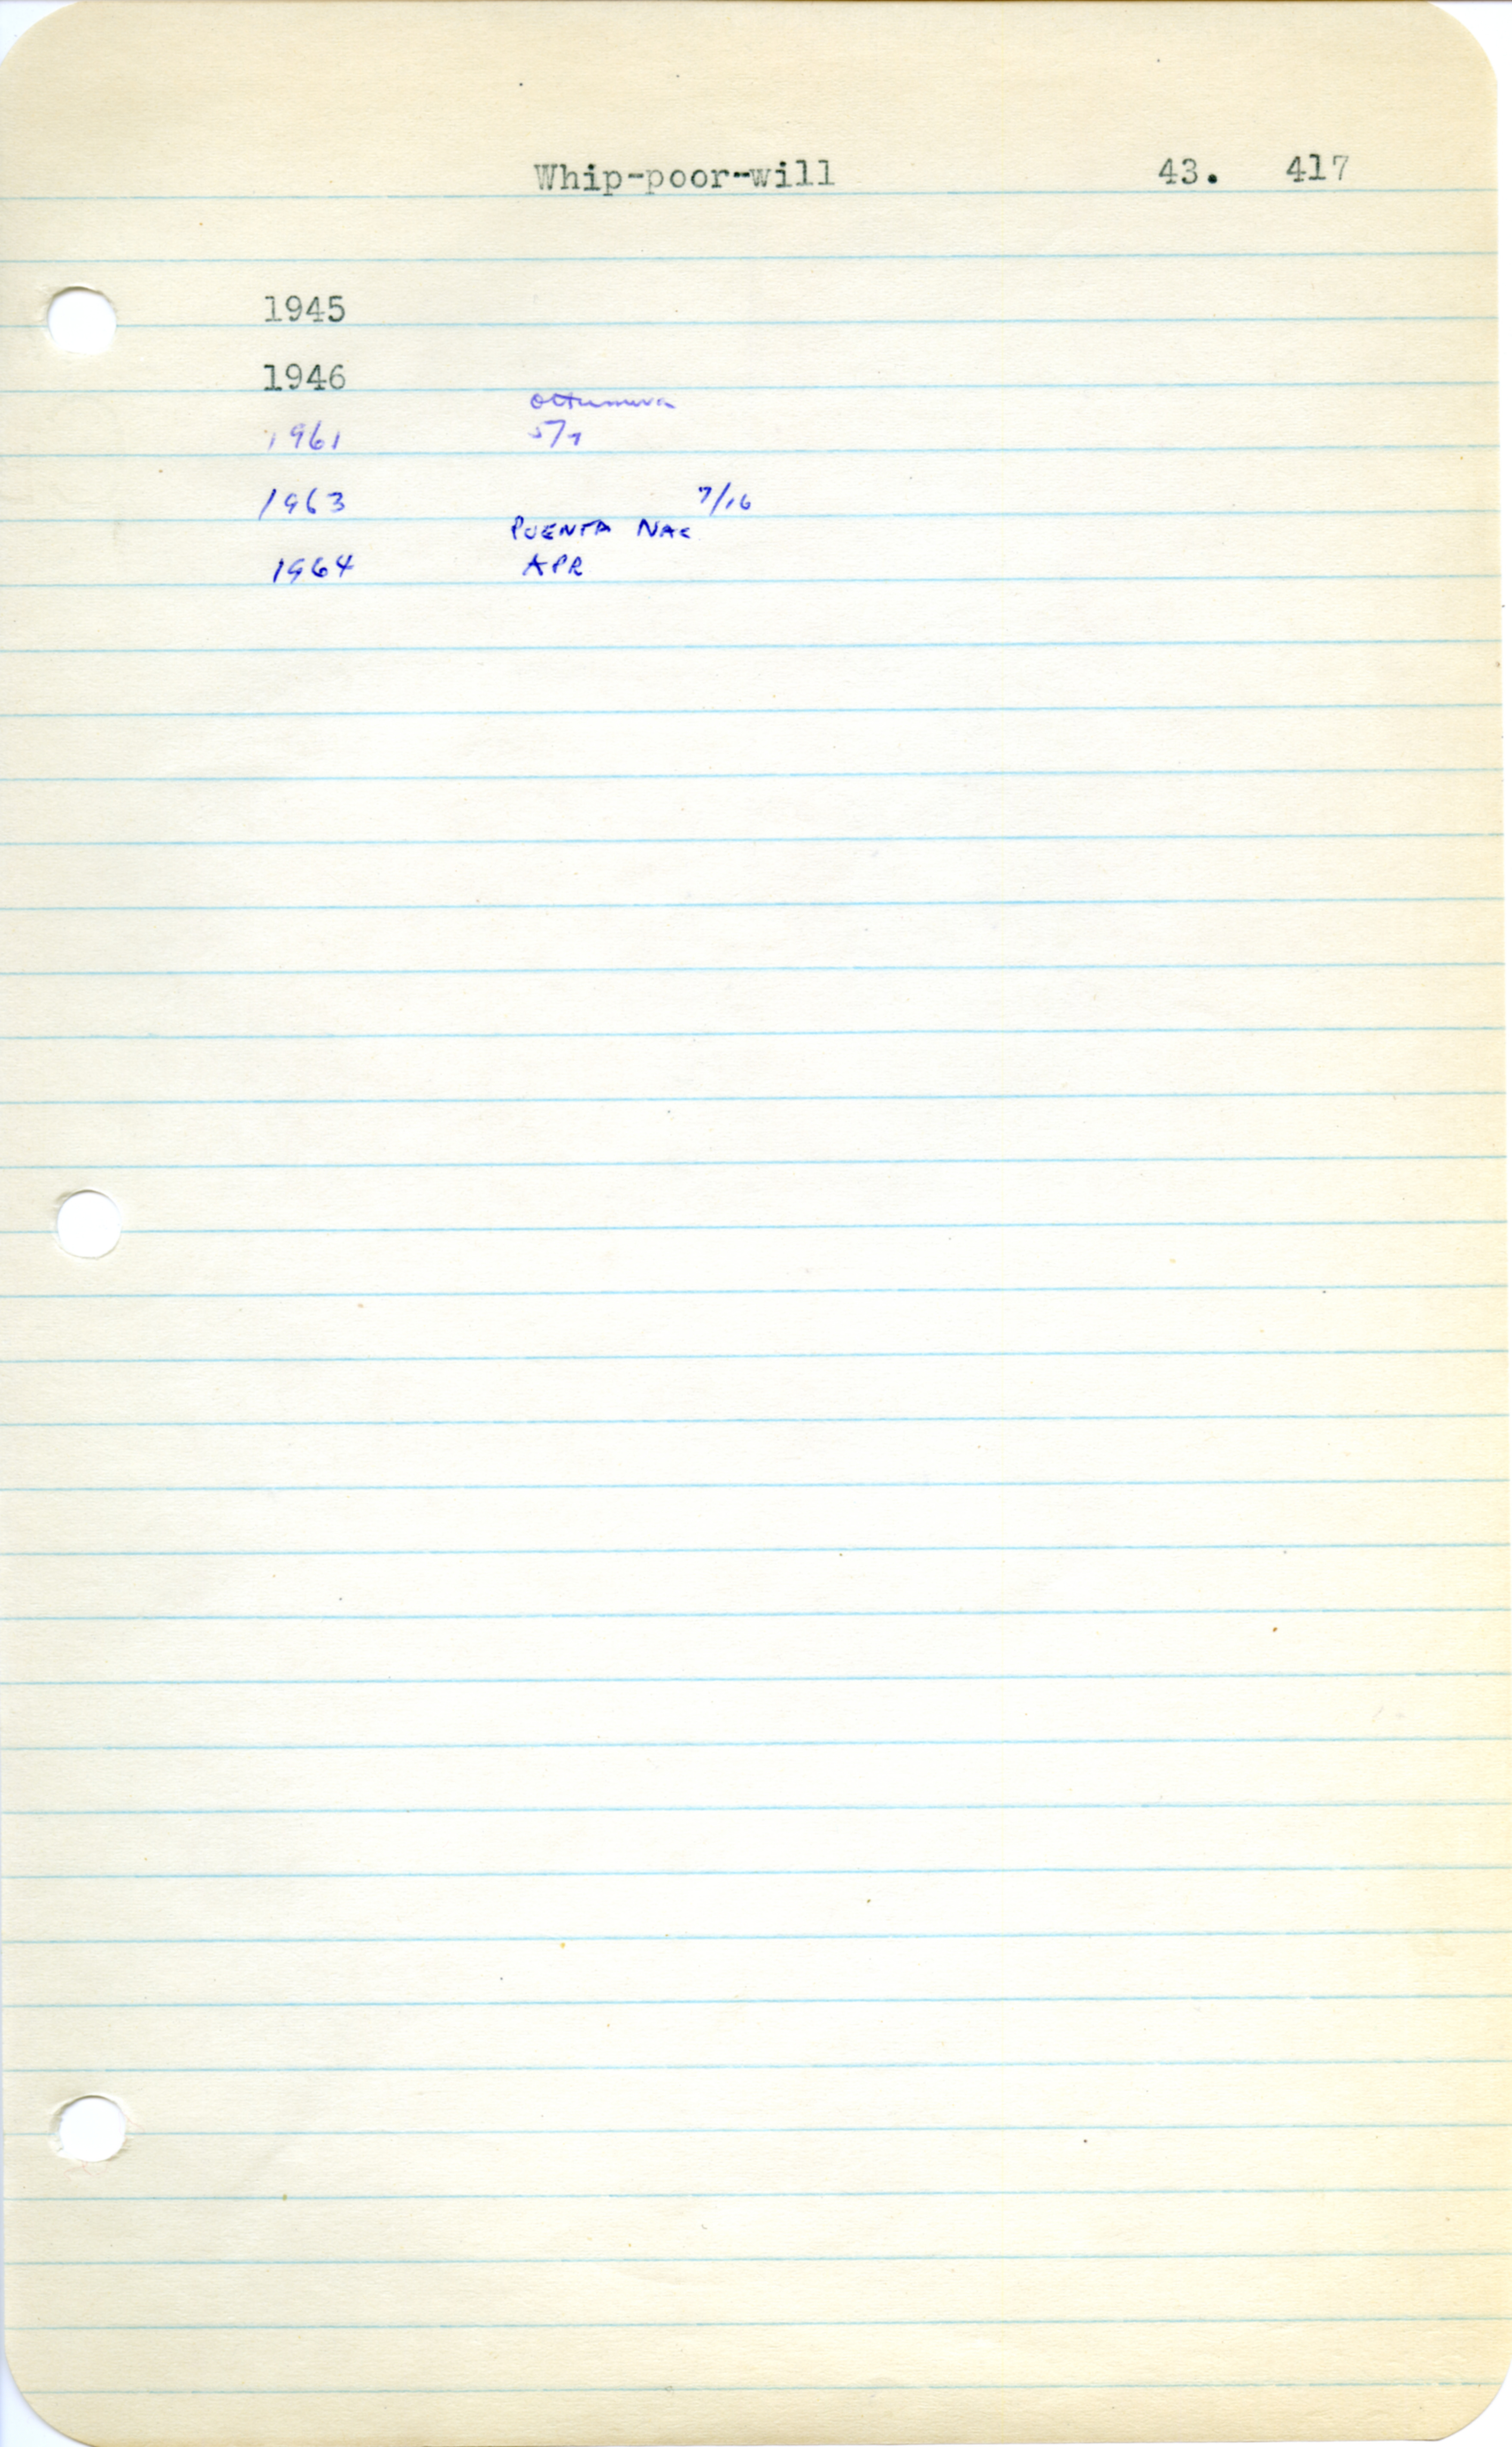 Whip-poor-will 43. 417
1945
1946
Ottumwa
1961 5/7
1963 7/16
PUENTA NAC
1964 APR